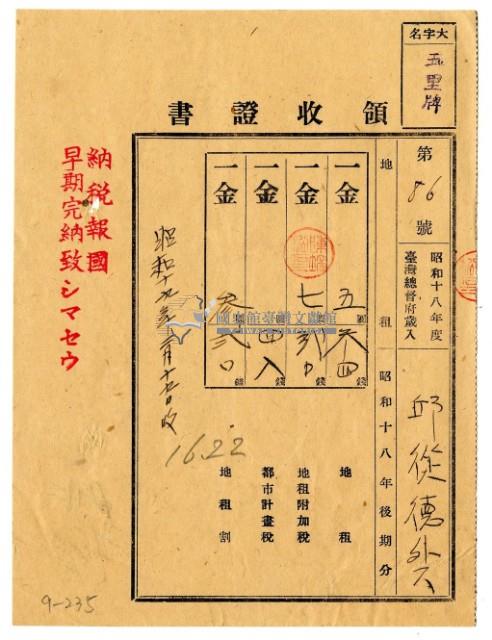 大字名
五里牌
領收證書
第 86 號
昭和十八年度
臺灣總督府歲入
邱從德外
地租
昭和十八年後期分
一金
五圓六四錢
地租
一金
七圓
錢
地租附加稅
一金
四八錢
都市計畫稅
一金
參圓貳〇錢
地租割
昭和十九年
月十七日收
16.22
納稅報國
早期完納致シマセウ
國史館臺灣文獻館
9-235